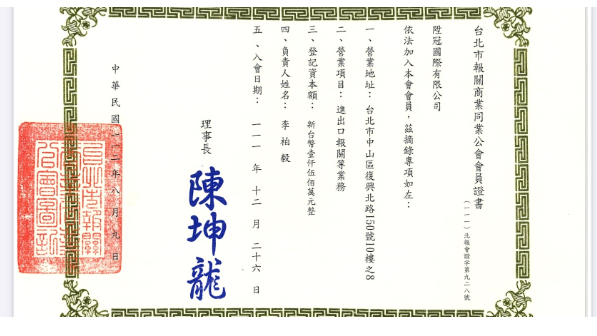 台北市報關商業同業公會會員證書
(一一一)北報會證字第九二八號
陞冠國際有限公司
依法加入本會會員，茲摘錄專項如左：
一、營業地址：台北市中山區復興北路150號10樓之8
二、營業項目：進出口報關等業務
三、登記資本額：新台幣壹仟伍佰萬元整
四、負責人姓名：李柏毅
五、入會日期：一一一年十二月二十六日
理事長 陳坤龍
中華民國一一二年八月九日